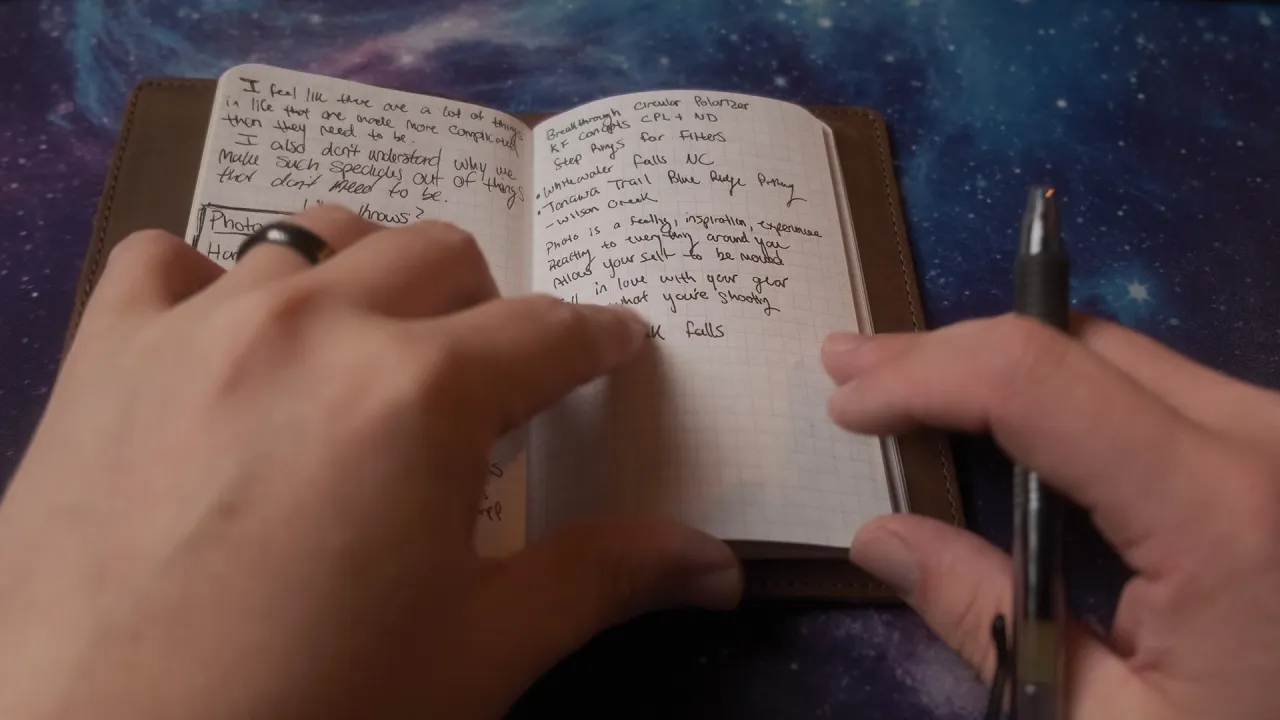 I feel like there are a lot of things
in life that are made more complicated
then they need to be.
I also don't understand why we
make such spectacles out of things
that don't need to be.
throws?
Photo
Breakthrough Circular Polarizer
KF Concepts CPL + ND
Step Rings for Filters
• Whitewater Falls NC
• Tanawa Trail Blue Ridge
- Wilson Creek
Photo is a feeling, inspiration, experience
Reacting to everything around you
Allow yourself to be moved
in love with your gear
what you're shooting
falls